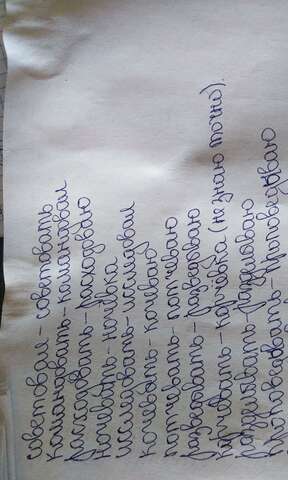 советовал - советовать
командовать - командовал
расходовать - расходовую
ночевать - ночёвка
исследовать - исследовал
кочевать - кочеваю
потчевать - потчеваю
разведовать - разведоваю
корчевать - корчёвка (не знаю точно).
разделывать - разделоваю
проповедовать - проповедоваю